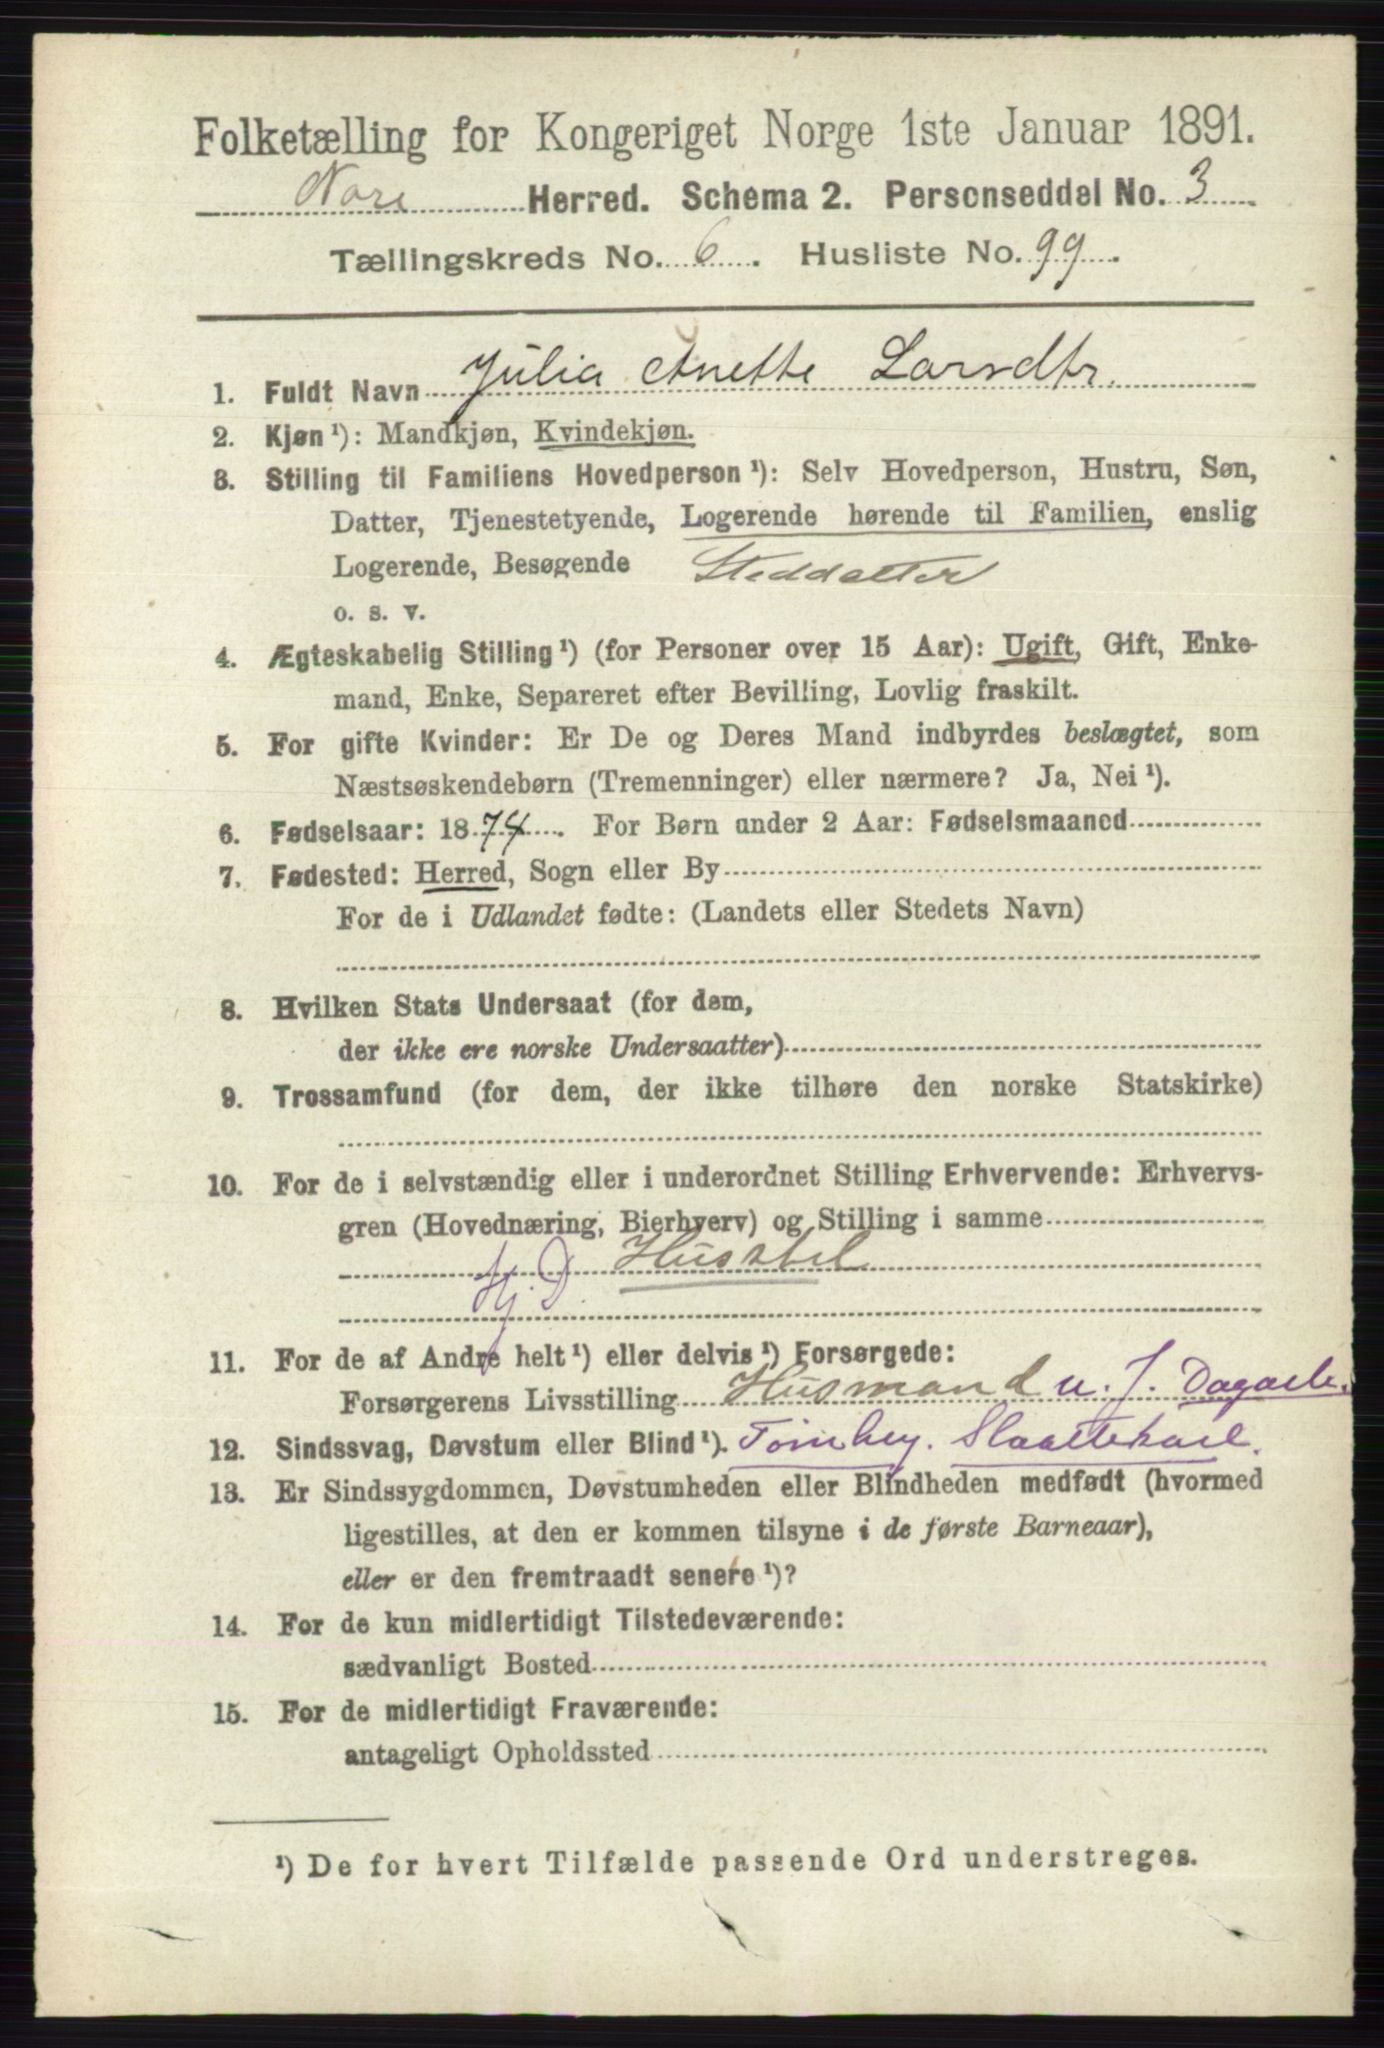 Folketælling for Kongeriget Norge 1ste Januar 1891.
Nore Herred. Schema 2. Personseddel No. 3
Tællingskreds No. 6. Husliste No. 99.
1. Fuldt Navn Julia Anette Larsdtr.
2. Kjøn ¹): Mandkjøn, Kvindekjøn.
3. Stilling til Familiens Hovedperson ¹): Selv Hovedperson, Hustru, Søn,
Datter, Tjenestetyende, Logerende hørende til Familien, enslig
Logerende, Besøgende Steddatter
o. s. v.
4. Ægteskabelig Stilling ¹) (for Personer over 15 Aar): Ugift, Gift, Enke-
mand, Enke, Separeret efter Bevilling, Lovlig fraskilt.
5. For gifte Kvinder: Er De og Deres Mand indbyrdes beslægtet, som
Næstsøskendebørn (Tremenninger) eller nærmere? Ja, Nei ¹).
6. Fødselsaar: 1874. For Børn under 2 Aar: Fødselsmaaned
7. Fødested: Herred, Sogn eller By
For de i Udlandet fødte: (Landets eller Stedets Navn)
8. Hvilken Stats Undersaat (for dem,
der ikke ere norske Undersaatter)
9. Trossamfund (for dem, der ikke tilhøre den norske Statskirke)
10. For de i selvstændig eller i underordnet Stilling Erhvervende: Erhvervs-
gren (Hovednæring, Bierhverv) og Stilling i samme
Hj. D Husstel
11. For de af Andre helt ¹) eller delvis ¹) Forsørgede:
Forsørgerens Livsstilling Husmand u. J. Dagarb.
12. Sindssvag, Døvstum eller Blind ¹). Tømhug. Slaattekarl.
13. Er Sindssygdommen, Døvstumheden eller Blindheden medfødt (hvormed
ligestilles, at den er kommen tilsyne i de første Barneaar),
eller er den fremtraadt senere ¹)?
14. For de kun midlertidigt Tilstedeværende:
sædvanligt Bosted
15. For de midlertidigt Fraværende:
antageligt Opholdssted
¹) De for hvert Tilfælde passende Ord understreges.